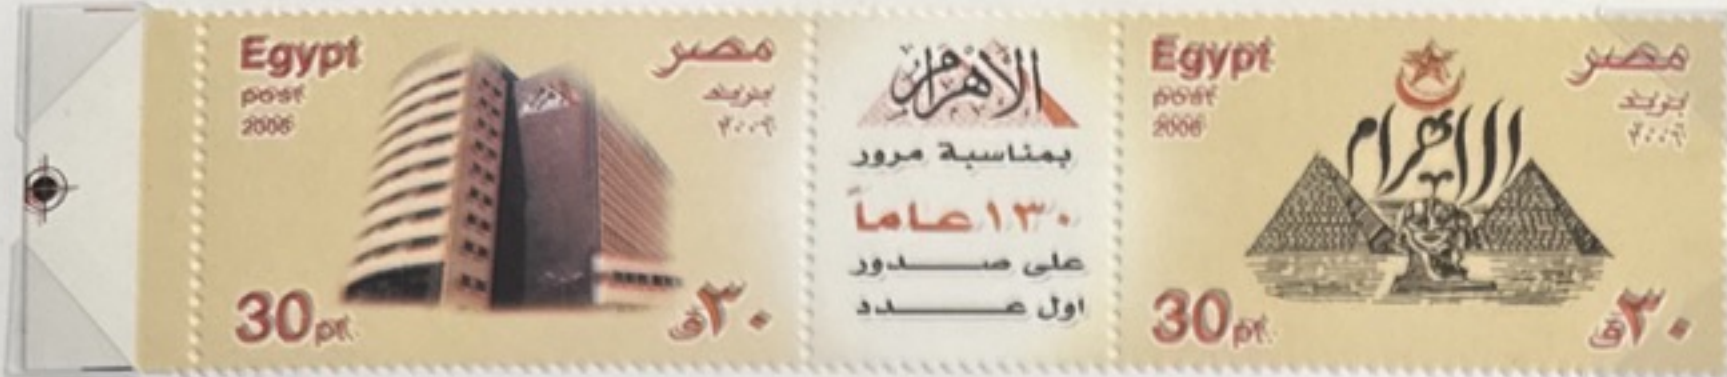 Egypt
post
2006
مصر
بريد
٢٠٠٦
30 pt.
٣٠ ق
الأهرام
بمناسبة مرور
١٣٠ عاماً
على صدور
اول عدد
Egypt
post
2006
مصر
بريد
٢٠٠٦
الاهرام
30 pt.
٣٠ ق